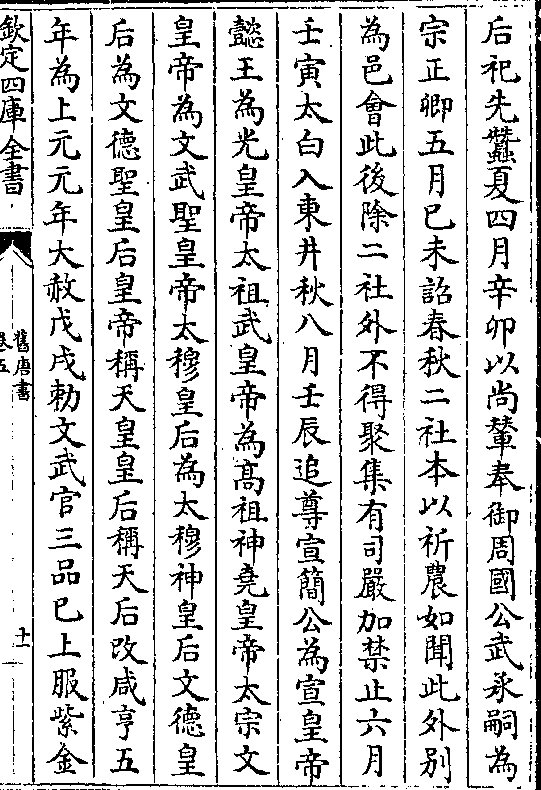 后祀先蠶夏四月辛卯以尚輦奉御周國公武承嗣為
宗正卿五月己未詔春秋二社本以祈農如聞此外别
為邑會此後除二社外不得聚集有司嚴加禁止六月
壬寅太白入東井秋八月壬辰追尊宣簡公為宣皇帝
懿王為光皇帝太祖武皇帝為髙祖神堯皇帝太宗文
皇帝為文武聖皇帝太穆皇后為太穆神皇后文德皇
后為文德聖皇后皇帝稱天皇皇后稱天后改咸亨五
年為上元元年大赦戊戌勅文武官三品已上服紫金
欽定四庫全書
舊唐書
卷五
十一